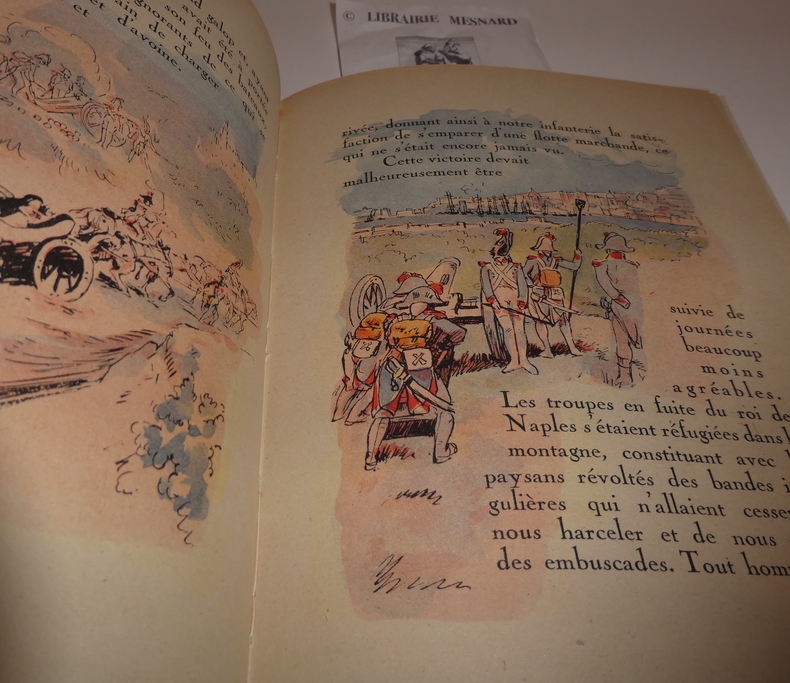 galop et
avait été
ignorants feu des
ain de charger ce qui
et d'avoine.
© LIBRAIRIE MESNARD
rivée, donnant ainsi à notre infanterie la satis-
faction de s'emparer d'une flotte marchande, ce
qui ne s'était encore jamais vu.
Cette victoire devait
malheureusement être
suivie de
journées
beaucoup
moins
agréables.
Les troupes en fuite du roi de
Naples s'étaient réfugiées dans
montagne, constituant avec
paysans révoltés des bandes i
gulières qui n'allaient cesse
nous harceler et de nous
des embuscades. Tout hom